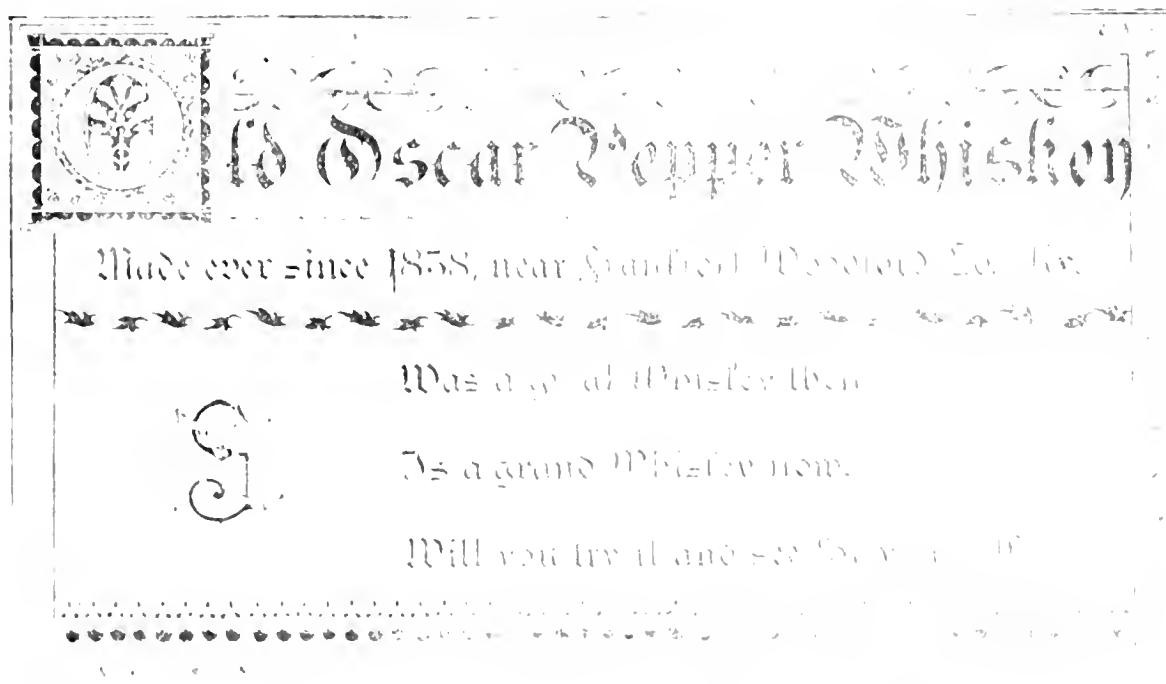 Old Oscar Pepper Whiskey
Made ever since 1838, near Frankfort, Woodford Co., Ky.
Was a great Whiskey then
Is a grand Whiskey now.
Will you try it and see for yourself